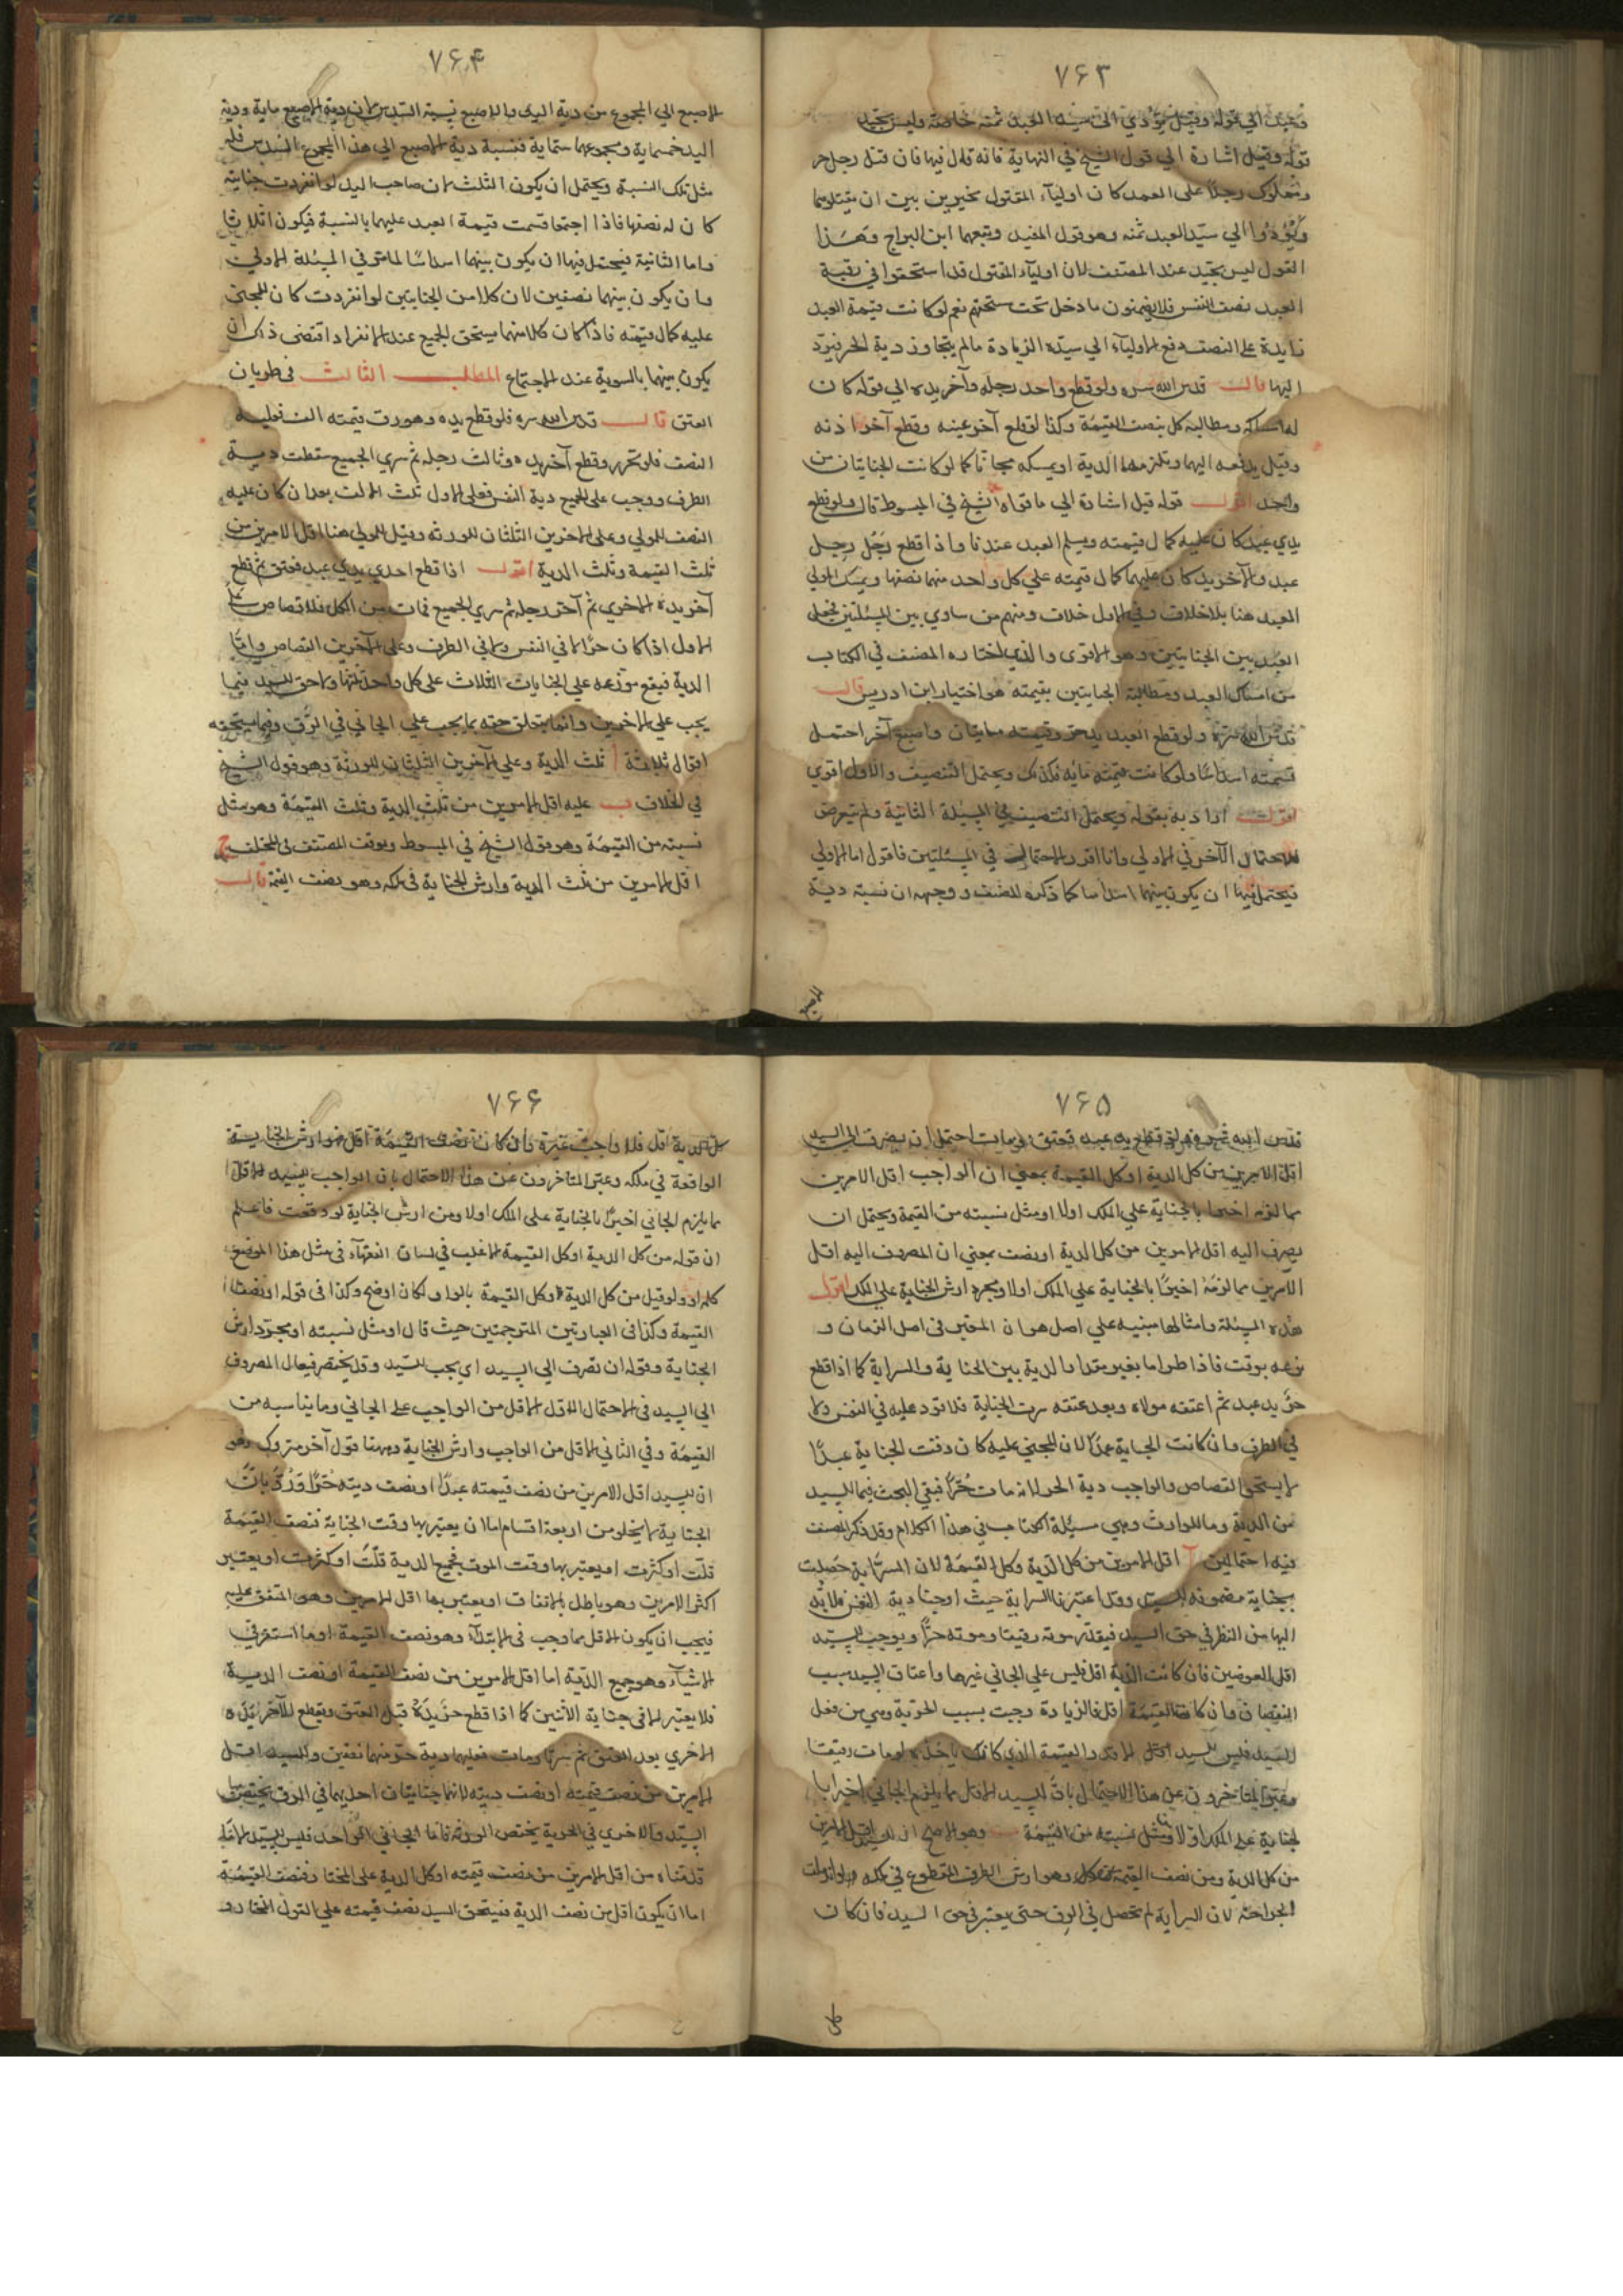 ٧۶٣
قوله وقيل اشارة الي قول الشيخ في النهاية فانه قال فيها فان قتل رجل حر
ومملوك رجلاً على العمد كان اوليآء المقتول مخيرين بين ان يقتلوهما
ويؤدوا الي سيّد العبد ثمنه وهو قول المفيد وتبعهما ابن البراج وهذا
القول ليس بجيّد عند المصنف لان اوليآء المقتول قد استحقوا في رقبة
العبد نصف النفس فلا يضمنون ما دخل تحت ستحقهم نعم لو كانت قيمة العبد
زايدة على النصف دفع الاوليآء الي سيّده الزيادة مالم يتجاوز دية الحر فيردّ
اليها قال قدس الله سره ولو قطع واحد رجله وآخر يده الي قوله كان
له امساكه ومطالبة كل بنصف القيمة وكذا لو قلع آخر عينه وقطع آخر اذنه
وقيل يدفعه اليهما ويلزمهما الدية او يمسكه مجاناً كما لو كانت الجنايتان من
واحد اقول قوله قيل اشارة الي ما قواه الشيخ في المبسوط قال ولو قطع
يدي عبد كان عليه كمال قيمته ويسلم العبد عندنا واذا قطع رَجُل رجل
عبد والآخر يده كان عليهما كمال قيمته علي كل واحد منهما نصفها ويمسك المولي
العبد هنا بلا خلاف وفي الاول خلاف ومنهم من ساوي بين المسئلتين فجعل
العبد بين الجنايتين وهو الاقوى والذي اختاره المصنف في الكتاب
من امساك العبد ومطالبة الجانيين بقيمته هو اختيار ابن ادريس قال
قدس الله سره ولو قطع العبد يد حر وقيمته مايتان واصبع آخر احتمل
قسمته اسداسًا ولو كانت قيمته مايه فكذلك ويحتمل التنصيف والاول اقوي
اقول اراد به بقوله ويحتمل التنصيف في المسئلة الثانية ولم يتعرض
للاحتمال الآخر في الاولي وانا اقرر الاحتمال في المسئلتين فاقول اما الاولي
فيحتمل فيها ان يكون بينهما اسداسا كما ذكره المصنف ووجهه ان نسبة دية
٧۶۴
الاصبع الي المجموع من دية اليد والاصبع نسبة السّدس لان دية الاصبع ماية ودية
اليد خمسماية ومجموعهما ستماية فنسبة دية الاصبع الي هذا المجموع السدس فله
مثل تلك النسبة ويحتمل ان يكون الثلث لان صاحب اليد لو انفردت جنايته
كان له نصفها فاذا اجتمعا قسمت قيمة العبد عليهما بالنسبة فيكون اثلاثا
واما الثانية فيحتمل فيها ان يكون بينهما اسداسًا لما مرّ في المسئلة الاولي
وان يكون بينهما نصفين لان كلا من الجنايتين لو انفردت كان للمجني
عليه كمال قيمته فاذا كان كلا منهما يستحق الجميع عند الانفراد اقتضى ذلك ان
يكون بينهما بالسوية عند الاجتماع المطلب الثالث في طريان
العتق قال قدس الله سره فلو قطع يده وهو رق قيمته الف فعليه
النصف فلو تحرر وقطع آخر يده وثالث رجله ثم سري الجميع سقطت دية
الطرف ووجب على الجميع دية النفس فعلى الاول ثلث الالف بعد ان كان عليه
النصف للمولي وعلى الاخرين الثلثان للورثه وقيل للمولي هنا اقل الامرين من
ثلث القيمة وثلث الدية اقول اذا قطع احدي يدي عبد فعتق ثم قطع
آخر يده الاخري ثم آخر رجله ثم سري الجميع فمات من الكل فلا قصاص علي
الاول اذا كان حرًّا لا في النفس ولا في الطرف وعلى الآخرين القصاص وامّا
الدية فيقع موزعه علي الجنايات الثلاث على كل واحد ثلثها ولا حق للسيد فيما
يجب علي الاخرين وانما يتعلق حقه بما يجب علي الجاني في الرّق وفيما يستحقه
اقوال ثلاثة ا ثلث الدية وعلي الآخرين الثلثان للورثة وهو قول الشيخ
في الخلاف ب عليه اقل الامرين من ثلث الدية وثلث القيمة وهو مثل
نسبته من القيمة وهو قول الشيخ في المبسوط وتوقف المصنف في المختلف ج
اقل الامرين من ثلث الدية وارش الجناية في ملكه وهو نصف القيمة قال
٧۶۵
قدس الله سره ولو قطع يد عبد فعتق ثم مات احتمل ان يصرف الي السيد
اقل الامرين من كل الدية او كل القيمة بمعني ان الواجب اقل الامرين
مما لزمه اخيرا بالجناية علي الملك اولا او مثل نسبته من القيمة ويحتمل ان
يصرف اليه اقل الامرين من كل الدية او نصف بمعني ان المصروف اليه اقل
الامرين مما لزمه اخيرًا بالجناية علي الملك اولا ومجرد ارش الجناية علي الملك اقول
هذه المسئلة وامثالها مبنيه علي اصل هو ان المعتبر في اصل الضمان و
نوعه بوقت فاذا طرا ما يغير مقدار الدية بين الجناية والسراية كما اذا قطع
حرّ يد عبد ثم اعتقه مولاه وبعد عتقه سرت الجناية فلا قود عليه في النفس ولا
في الطرف وان كانت الجناية عمدًا لان المجني عليه كان وقت الجناية عبدًا
لا يستحق القصاص والواجب دية الحر لانه مات حُرًّا فبقي البحث فيما للسيد
من الدية وما للوارث وهي مسئلة الكتاب في هذا الكلام وقد ذكر المصنف
فيه احتمالين ا اقل الامرين من كل الدّية وكل القيمة لان السرّاية حصلت
بجناية مضمونه للسيد وقد اعتبرنا السراية حيث اوجبنا دية النفس فلا بُد
اليها من النظر في حق السيد فيقدّر موته رقيقا وموته حرًّا ويوجب للسيّد
اقل العوضين فان كانت الدية اقل فليس علي الجاني غيرها واعتاق السيد سبب
النقصان وان كانت القيمة اقل فالزيادة وجبت بسبب الحرّية وهي من فعل
السيّد فليس للسيد اقل الا قدر القيمة الذي كانت ياخذه لو مات رقيقا
وعبر المتاخرون عن هذا الاحتمال بانّ للسيد الاقل مما يلزم الجاني اخيرا با
لجناية على الملك اولا ومثل نسبته من القيمة ب وهو الاصح ان للسيد اقل الامرين
من كل الدية ومن نصف القيمة وهو ارش الطرف المقطوع في ملكه
الجراحة لان السراية لم تحصل في الرق حتى يعتبر في حق السيد فان كان
٧۶۶
كل الدية اقل فلا واجب غيره وان كان نصف القيمة اقل فهو ارش الجناية
الواقعة في ملكه وعبّر المتاخرون عن هذا الاحتمال بان الواجب للسيد الاقل
ما يلزم الجاني اخيرًا بالجناية علي الملك اولا ومن ارش الجناية لو وقعت فاعلم
ان قوله من كل الدية او كل القيمة الاغلب في لسان الفقهآء في مثل هذا الموضع
كلمة او ولو قيل من كل الدية وكل القيمة بالواو لكان اوضح وكذا في قوله او نصف
القيمة وكذا في العبارتين المترجمتين حيث قال او مثل نسبته او مجرّد ارش
الجناية وقوله ان تصرف الي السيد اي يجب للسّيد وقد يختصر فيقال المصروف
الي السيد في الاحتمال الاوّل الاقل من الواجب على الجاني وما يناسبه من
القيمة وفي الثاني الاقل من الواجب وارش الجناية وههنا قول آخر متروك وهو
ان للسيد اقل الامرين من نصف قيمته عبدًا او نصف ديته حُرًّا وَرُدّ بانّ
الجناية لا يخلو من اربعة اقسام اما ان يعتبر بها وقت الجناية فنصف القيمة
قلّت او كثرت او يعتبر بها وقت الموت فجميع الدية قلّت او كثرت او يعتبر
اكثر الامرين وهو باطل بالاتفاق او يعتبر بها اقل الامرين وهو المتفق عليه
فيجب ان يكون الاقل مما وجب في الابتدآء وهو نصف القيمة او ما استقر في
الانتهآء وهو جميع الدّية اما اقل الامرين من نصف القيمة او نصف الدية
فلا يعتبر الا في جناية الاثنين كما اذا قطع حرّ يَدَهُ قبل العتق وقطع الآخر يَدَه
الاخري بعد العتق ثم سرتا ومات فعليهما دية حر منهما نصفين وللسيد اقل
الامرين من نصف قيمته او نصف ديته لانهما جنايتان احديهما في الرق يختص بها
السيّد والاخري في الحرية يختص الورثة فاما الجاني الواحد فليس للسيّد الا ما
قلناه من اقل الامرين من نصف قيمته او كل الدية على المختار ونصف القيمة
اما ان يكون اقل من نصف الدية فيستحق السيد نصف قيمته علي القول المختار و